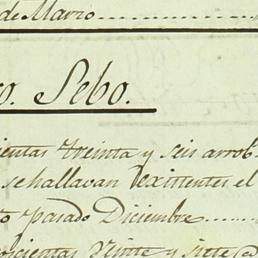 de Marzo
o. Sebo.
ientas treinta y seis arrob
se hallavan existentes el
to pasado Diciembre
oscientas veinte y siete